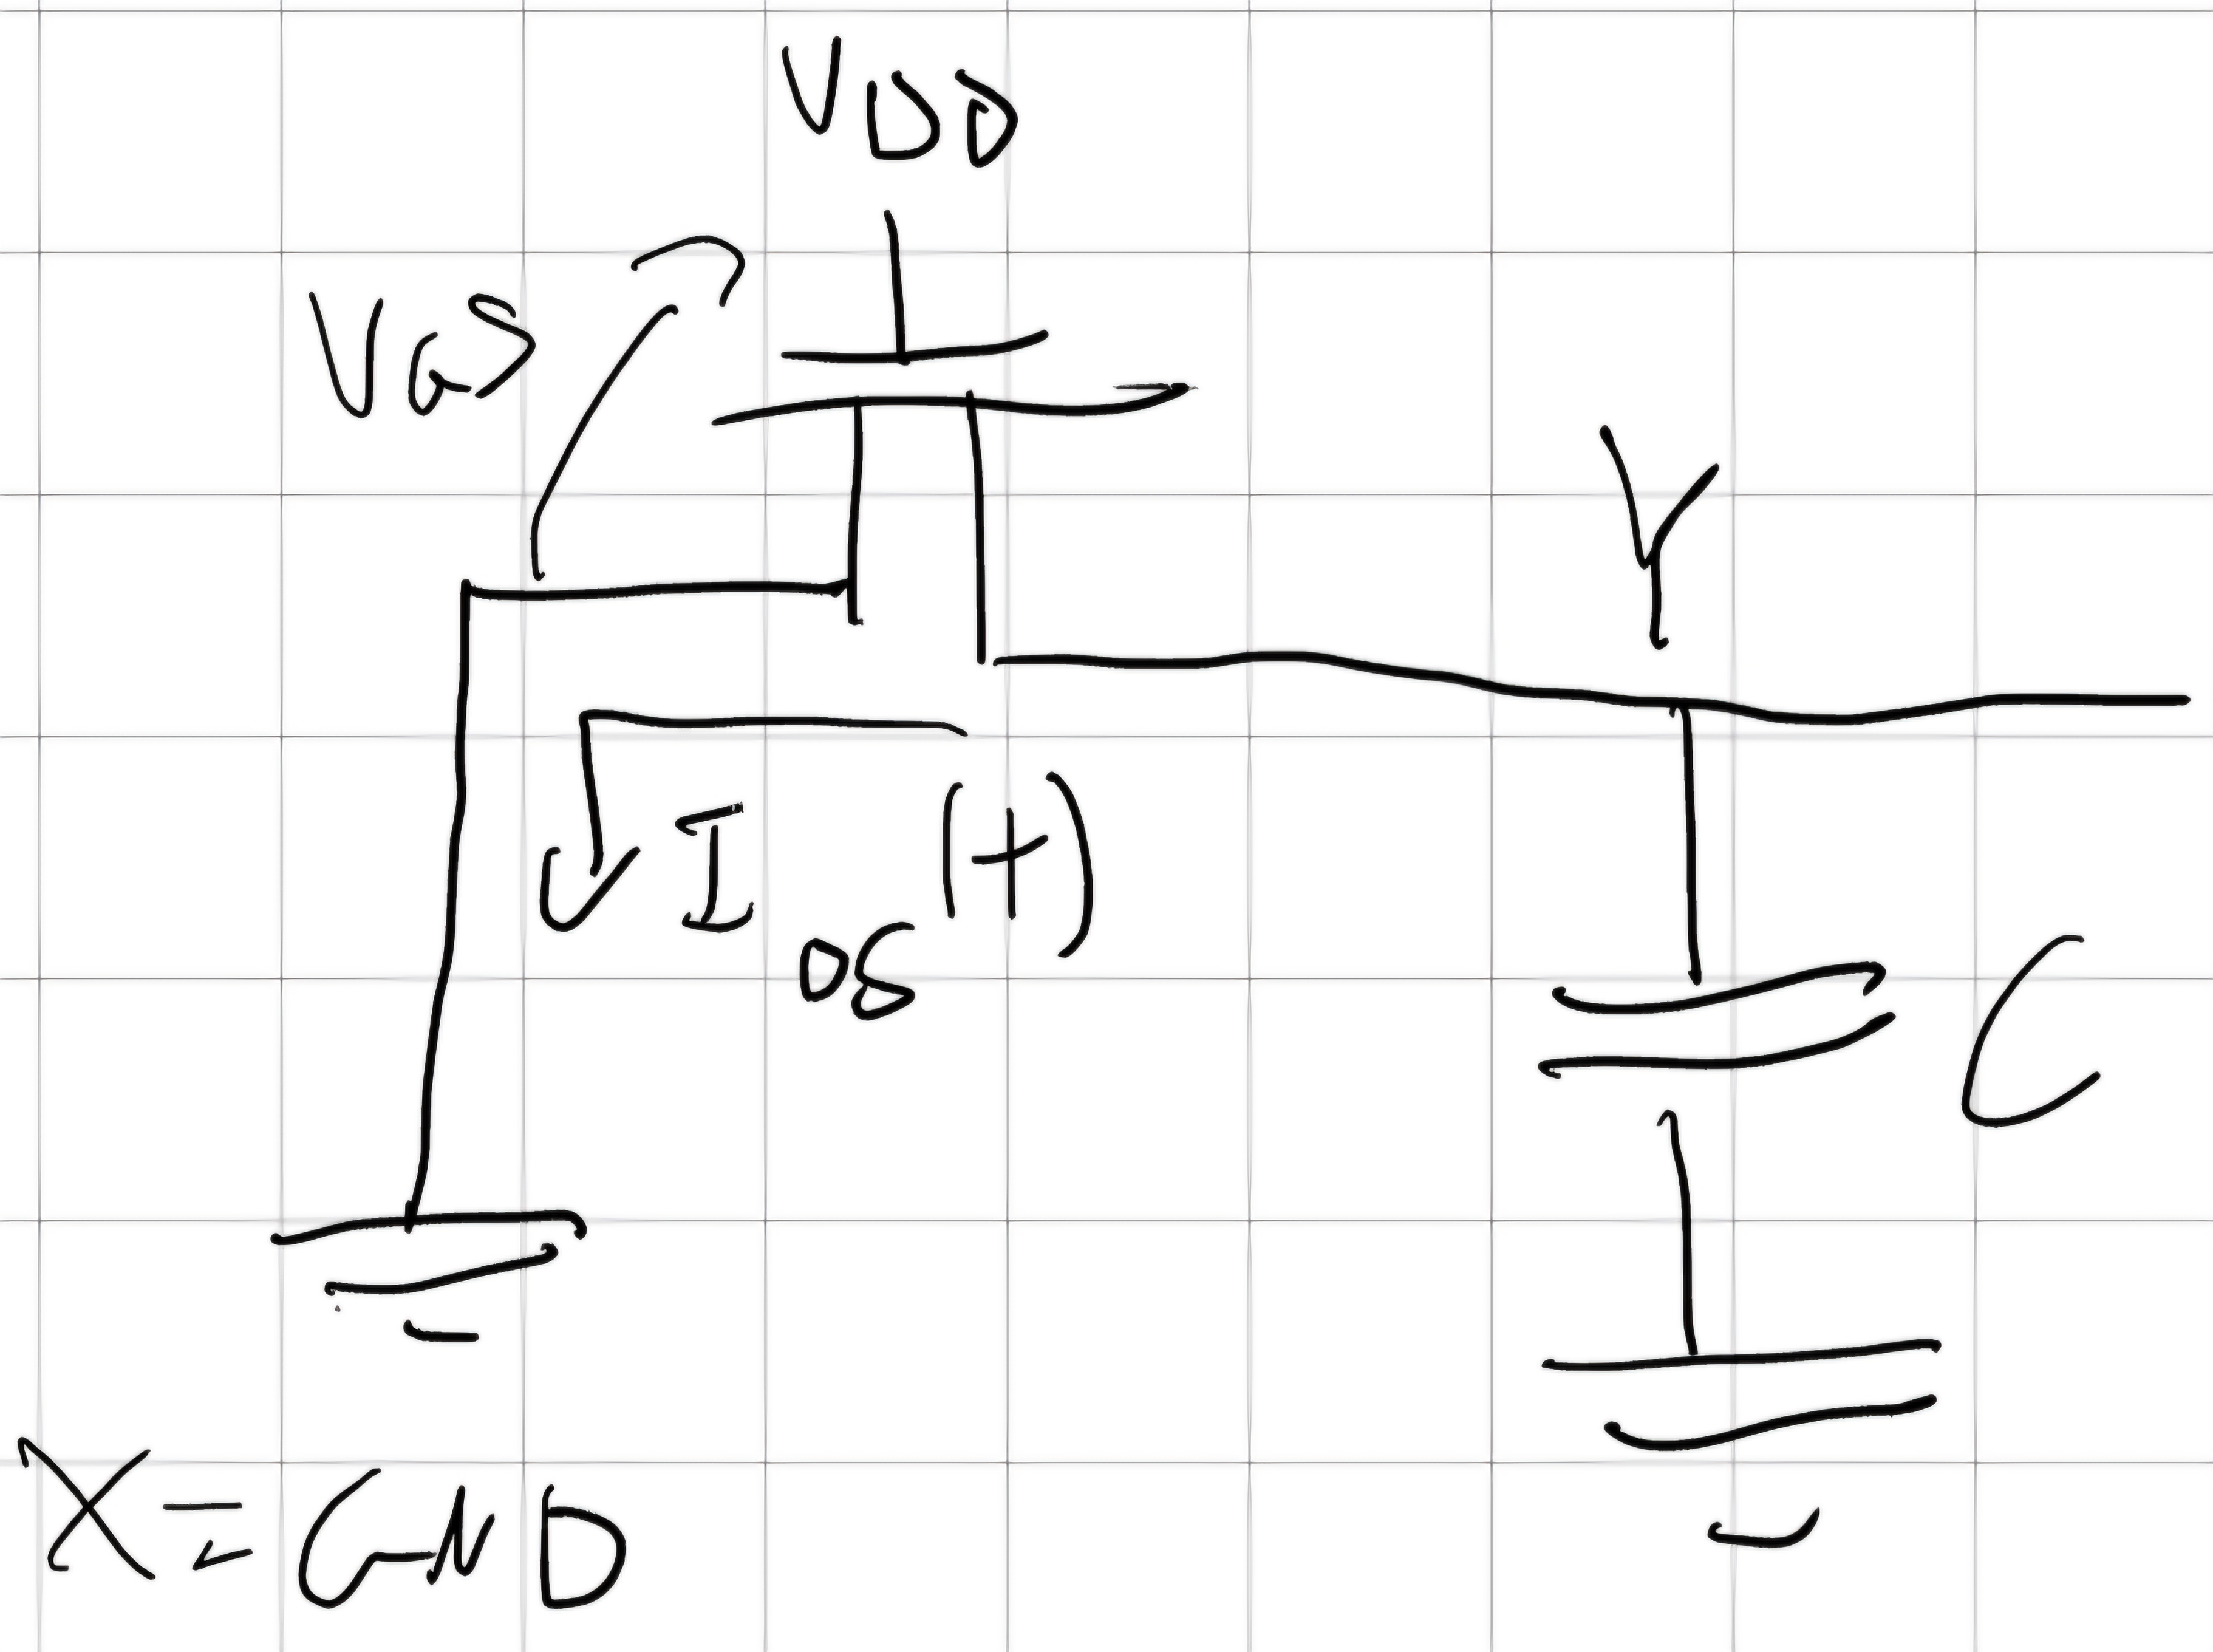 VDD
VGS
Y
I
DS
(+)
C
X = GND